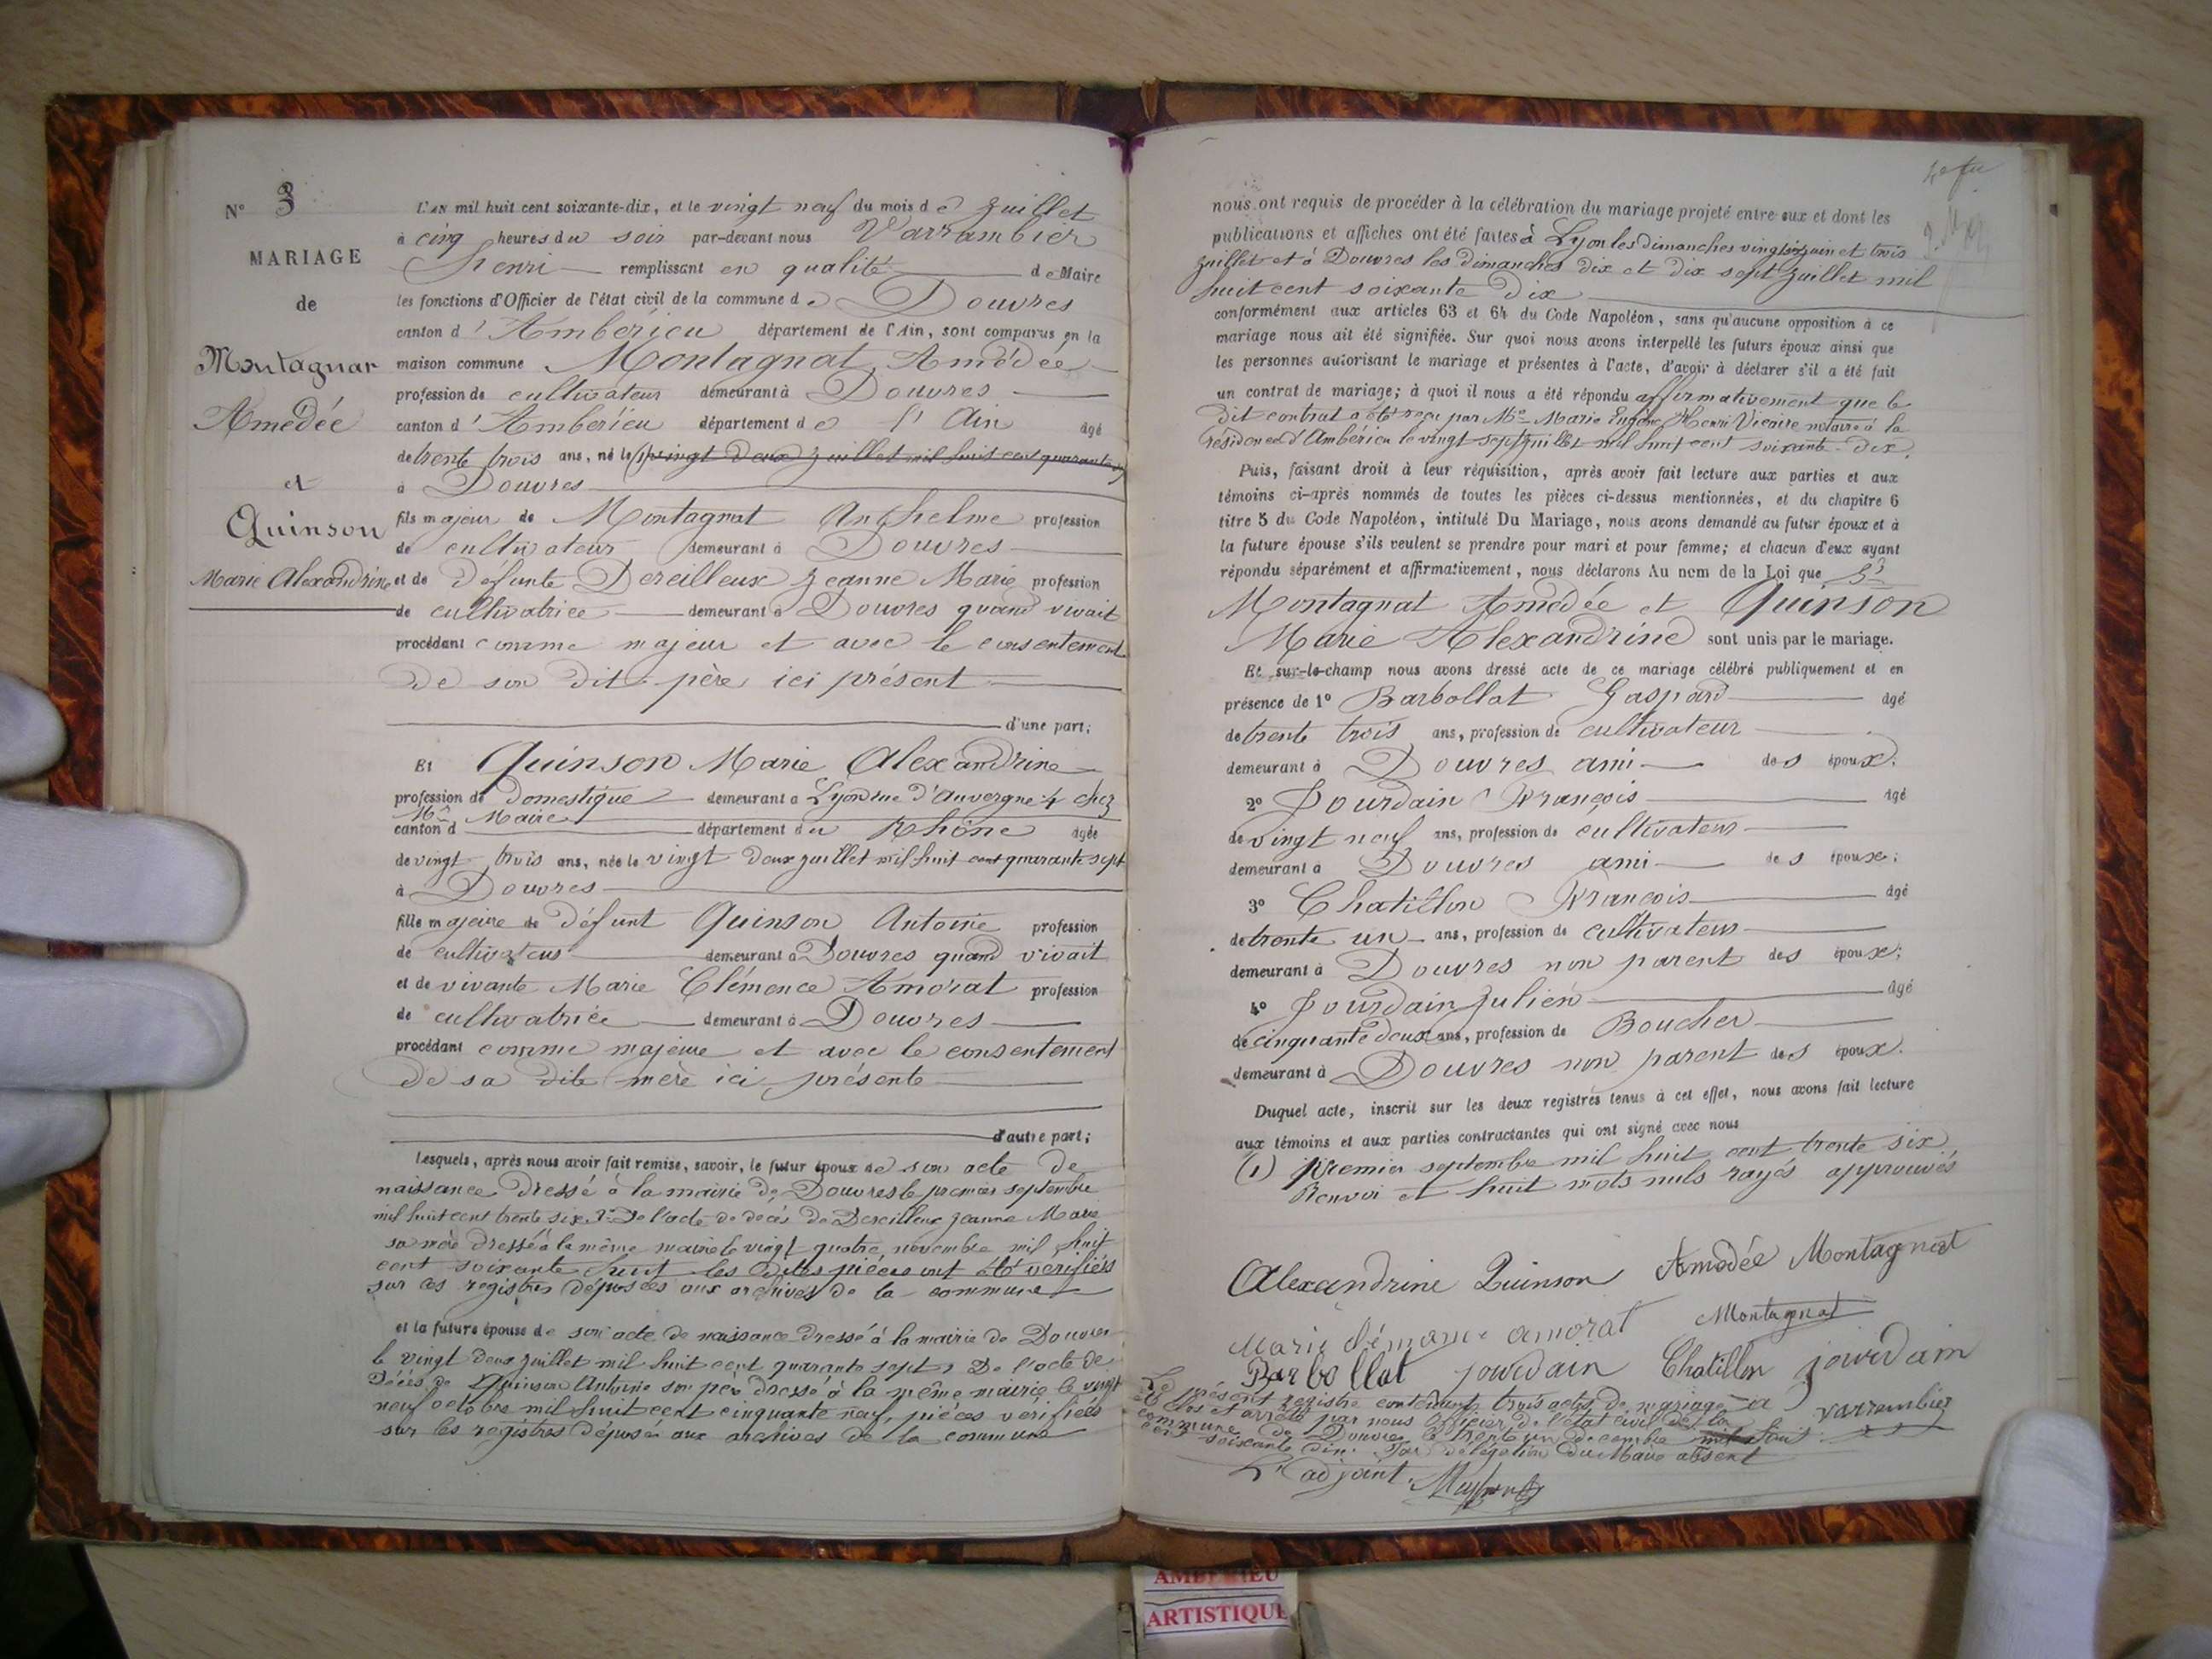 N° 3
MARIAGE
de
Montagnat
Amédée
et
Quinson
Marie Alexandrine
L'AN mil huit cent soixante-dix, et le vingt neuf du mois de Juillet
à cinq heures du soir par-devant nous Varrambier
Henri remplissant en qualité de Maire
les fonctions d'Officier de l'état civil de la commune de Douvres
canton d'Ambérieu département de l'Ain, sont comparus en la
maison commune Montagnat Amédée
profession de cultivateur demeurant à Douvres
canton d'Ambérieu département de l'Ain âgé
de trente trois ans, né le (1) vingt deux juillet mil huit cent quarante
à Douvres
fils majeur de Montagnat Anthelme profession
de cultivateur demeurant à Douvres
et de défunte Dereilleux Jeanne Marie profession
de cultivatrice demeurant à Douvres quand vivait
procédant comme majeur et avec le consentement
de son dit père ici présent
d'une part;
Et Quinson Marie Alexandrine
profession de domestique demeurant à Lyon rue d'Auvergne 4 chez
Mr Maire
canton d département du Rhône âgée
de vingt trois ans, née le vingt deux juillet mil huit cent quarante sept
à Douvres
fille majeure de défunt Quinson Antoine profession
de cultivateur demeurant à Douvres quand vivait
et de vivante Marie Clémence Amorat profession
de cultivatrice demeurant à Douvres
procédant comme majeure et avec le consentement
de sa dite mère ici présente
d'autre part;
Lesquels, après nous avoir fait remise, savoir, le futur époux de son acte de
naissance dressé à la mairie de Douvres le premier septembre
mil huit cent trente six 2° De l'acte de décès de Dereilleux Jeanne Marie
sa mère dressé à la même mairie le vingt quatre novembre mil huit
cent soixante huit les dites pièces ont été vérifiées
sur les registres déposées aux archives de la commune
et la future épouse de son acte de naissance dressé à la mairie de Douvres
le vingt deux juillet mil huit cent quarante sept, De l'acte de
Décès de Quinson Antoine son père dressé à la même mairie le vingt
neuf octobre mil huit cent cinquante neuf, pièces vérifiées
sur les registres déposés aux archives de la commune
nous ont requis de procéder à la célébration du mariage projeté entre eux et dont les
publications et affiches ont été faites à Lyon les dimanches vingt six juin et trois
juillet et à Douvres les dimanches dix et dix sept juillet mil
huit cent soixante dix
conformément aux articles 63 et 64 du Code Napoléon, sans qu'aucune opposition à ce
mariage nous ait été signifiée. Sur quoi nous avons interpellé les futurs époux ainsi que
les personnes autorisant le mariage et présentes à l'acte, d'avoir à déclarer s'il a été fait
un contrat de mariage; à quoi il nous a été répondu affirmativement que le
dit contrat a été reçu par Me Marie Eugène Henri Vicaire notaire à la
résidence d'Ambérieu le vingt sept juillet mil huit cent soixante dix.
Puis, faisant droit à leur réquisition, après avoir fait lecture aux parties et aux
témoins ci-après nommés de toutes les pièces ci-dessus mentionnées, et du chapitre 6
titre 5 du Code Napoléon, intitulé Du Mariage, nous avons demandé au futur époux et à
la future épouse s'ils veulent se prendre pour mari et pour femme; et chacun d'eux ayant
répondu séparément et affirmativement, nous déclarons Au nom de la Loi que
Montagnat Amédée et Quinson
Marie Alexandrine sont unis par le mariage.
Et sur-le-champ nous avons dressé acte de ce mariage célébré publiquement et en
présence de 1° Barbollat Gaspard âgé
de trente trois ans, profession de cultivateur
demeurant à Douvres ami des époux;
2° Jourdain François âgé
de vingt neuf ans, profession de cultivateur
demeurant à Douvres ami des époux;
3° Chatillon François âgé
de trente un ans, profession de cultivateur
demeurant à Douvres non parent des époux;
4° Jourdain Julien âgé
de cinquante deux ans, profession de Boucher
demeurant à Douvres non parent des époux.
Duquel acte, inscrit sur les deux registres tenus à cet effet, nous avons fait lecture
aux témoins et aux parties contractantes qui ont signé avec nous
(1) Premier septembre mil huit cent trente six
Renvoi et huit mots nuls rayés approuvés
Alexandrine Quinson Amédée Montagnat
Marie Clémance amorat Montagnat
Barbollat jourdain Chatillon jourdain
Le présent registre contenant trois actes de mariage a
été clos et arrêté par nous officier de l'état civil de la varrambier
commune de Douvres le trente un décembre mil huit
cent soixante dix. Par délégation du Maire absent
L'adjoint.
AMBERIEU
ARTISTIQUE